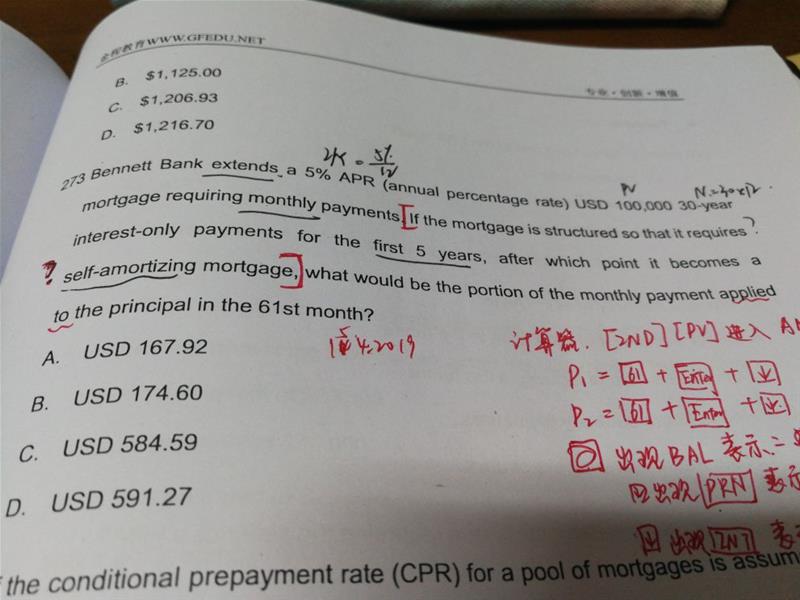 金程教育WWW.GFEDU.NET
专业·创新·增值
B. $1,125.00
C. $1,206.93
D. $1,216.70
= 5%/12
273 Bennett Bank extends a 5% APR (annual percentage rate) USD 100,000 30-year
PV N=30×12
mortgage requiring monthly payments. If the mortgage is structured so that it requires
interest-only payments for the first 5 years, after which point it becomes a
self-amortizing mortgage, what would be the portion of the monthly payment applied
to the principal in the 61st month?
A. USD 167.92
B. USD 174.60
C. USD 584.59
D. USD 591.27
4.2019
计算器. [2ND] [PV] 进入
P1 = 61 + Enter + ↓
P2 = 61 + Enter + ↓
出现 BAL 表示
出现 PRN 表示
出现 INT 表
the conditional prepayment rate (CPR) for a pool of mortgages is assum